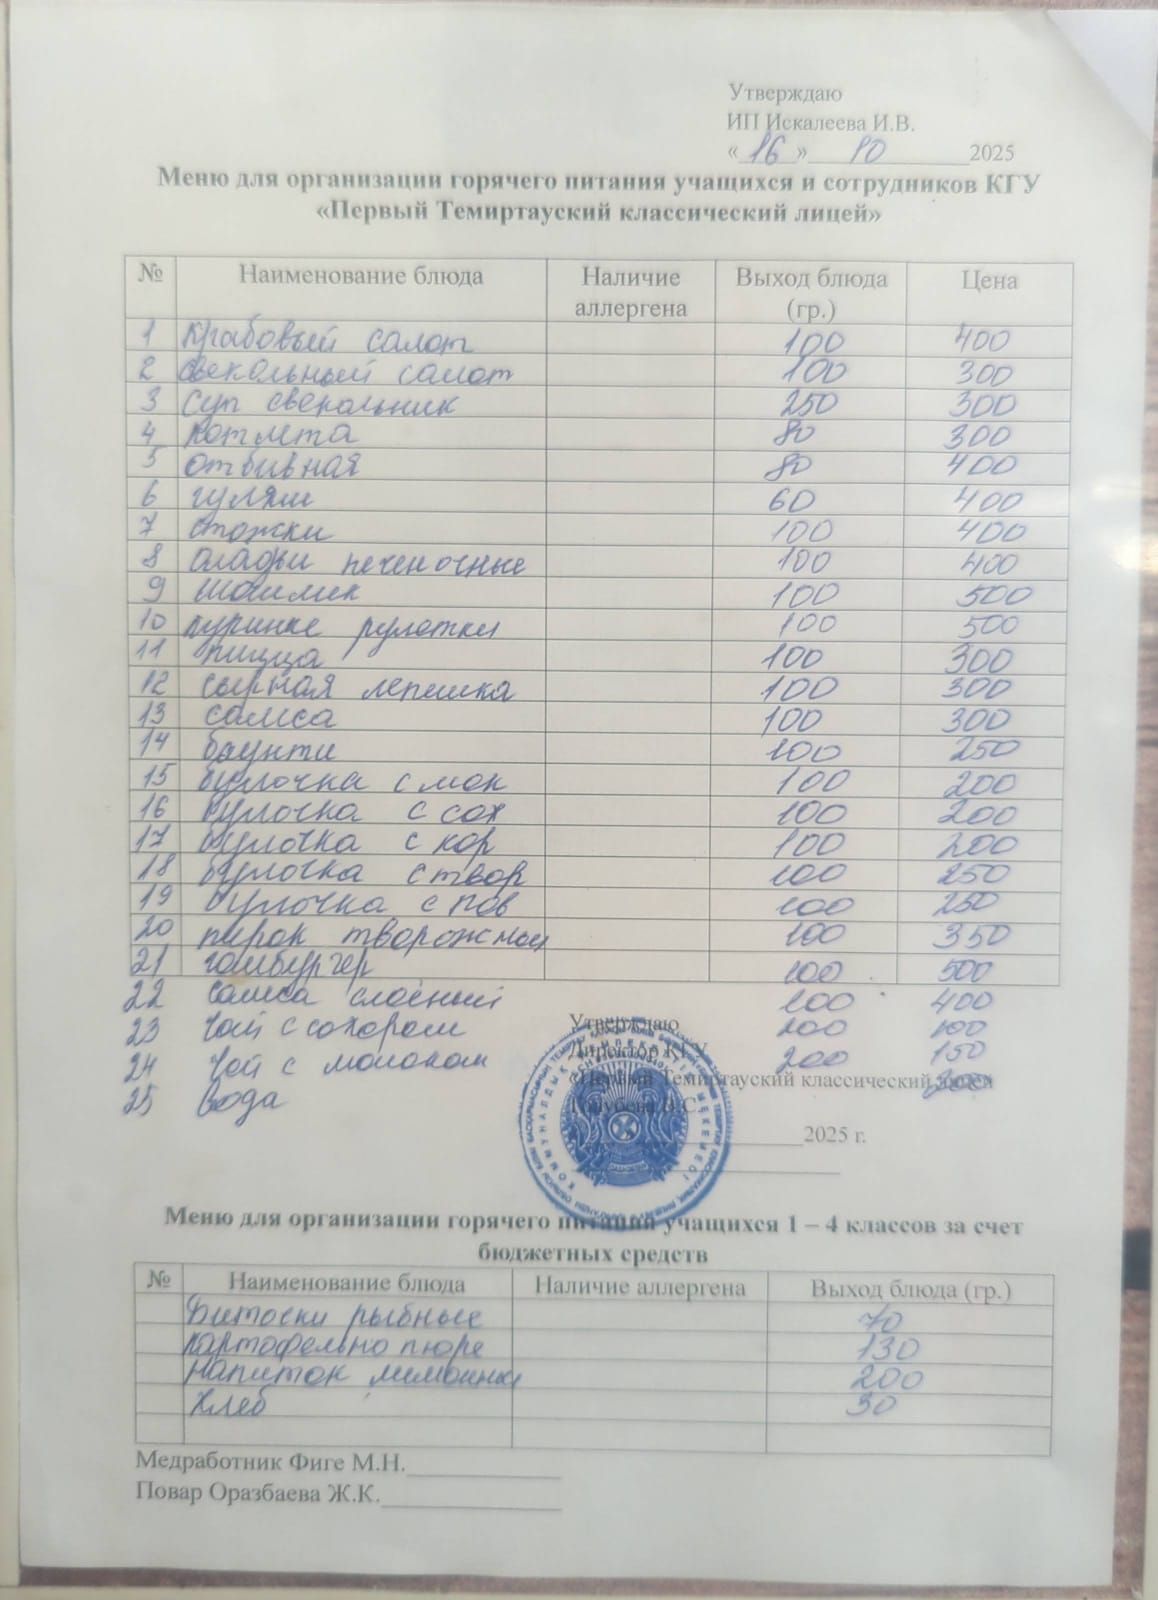 Утверждаю
ИП Искалеева И.В.
« 16 » 10 2025
Меню для организации горячего питания учащихся и сотрудников КГУ
«Первый Темиртауский классический лицей»
№ Наименование блюда Наличие аллергена Выход блюда (гр.) Цена
1 Крабовый салат 100 400
2 свекольный салат 100 300
3 Суп свекольник 250 300
4 котлета 80 300
5 отбивная 80 400
6 гуляш 60 400
7 стожки 100 400
8 оладьи печеночные 100 400
9 100 500
10 рулетки 100 500
11 пицца 100 300
12 сырная лепешка 100 300
13 самса 100 300
14 баунти 100 250
15 булочка с мак 100 200
16 булочка с сах 100 200
17 булочка с кор 100 200
18 булочка с твор 100 250
19 булочка с пов 100 250
20 пирог творожный 100 350
21 гамбургер 100 500
22 самса слоёный 100 400
23 чай с сахаром 200 100
24 чай с молоком 200 150
25 вода 200
Утверждаю
Директор КГУ
«Первый Темиртауский классический лицей
2025 г.
Меню для организации горячего питания учащихся 1 – 4 классов за счет
бюджетных средств
№ Наименование блюда Наличие аллергена Выход блюда (гр.)
Биточки рыбные 70
картофельно пюре 130
напиток 200
Хлеб 30
Медработник Фиге М.Н.
Повар Оразбаева Ж.К.